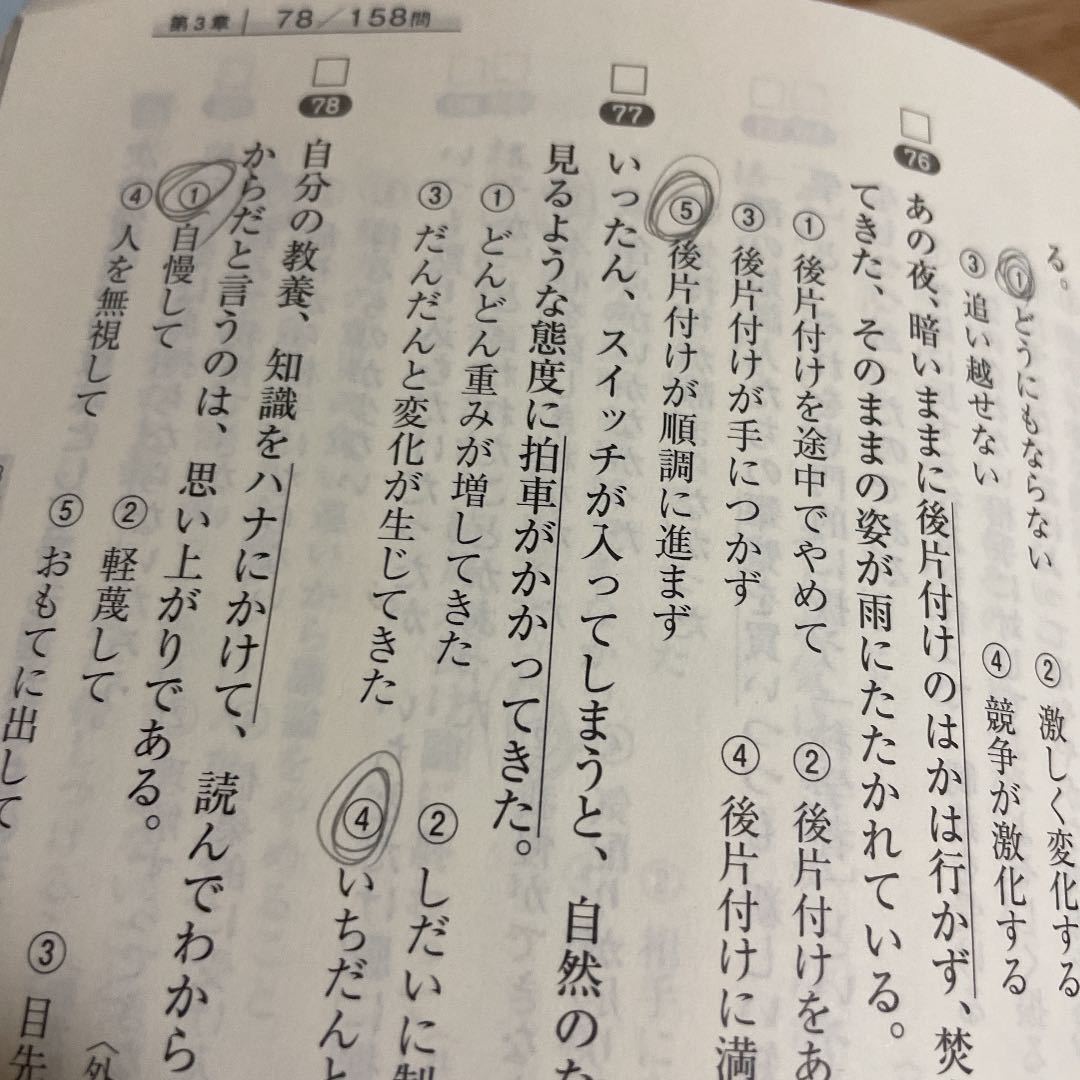 第3章 78/158問
る。
① どうにもならない ② 激しく変化する
③ 追い越せない ④ 競争が激化する
76
あの夜、暗いままに後片付けのはかは行かず、焚
てきた、そのままの姿が雨にたたかれている。
① 後片付けを途中でやめて ② 後片付けをあ
③ 後片付けが手につかず ④ 後片付けに満
⑤ 後片付けが順調に進まず
77
いったん、スイッチが入ってしまうと、自然のな
見るような態度に拍車がかかってきた。
① どんどん重みが増してきた ② しだいに制
③ だんだんと変化が生じてきた ④ いちだんと
78
自分の教養、知識をハナにかけて、読んでわから
からだと言うのは、思い上がりである。 〈外
① 自慢して ② 軽蔑して ③ 目先
④ 人を無視して ⑤ おもてに出して